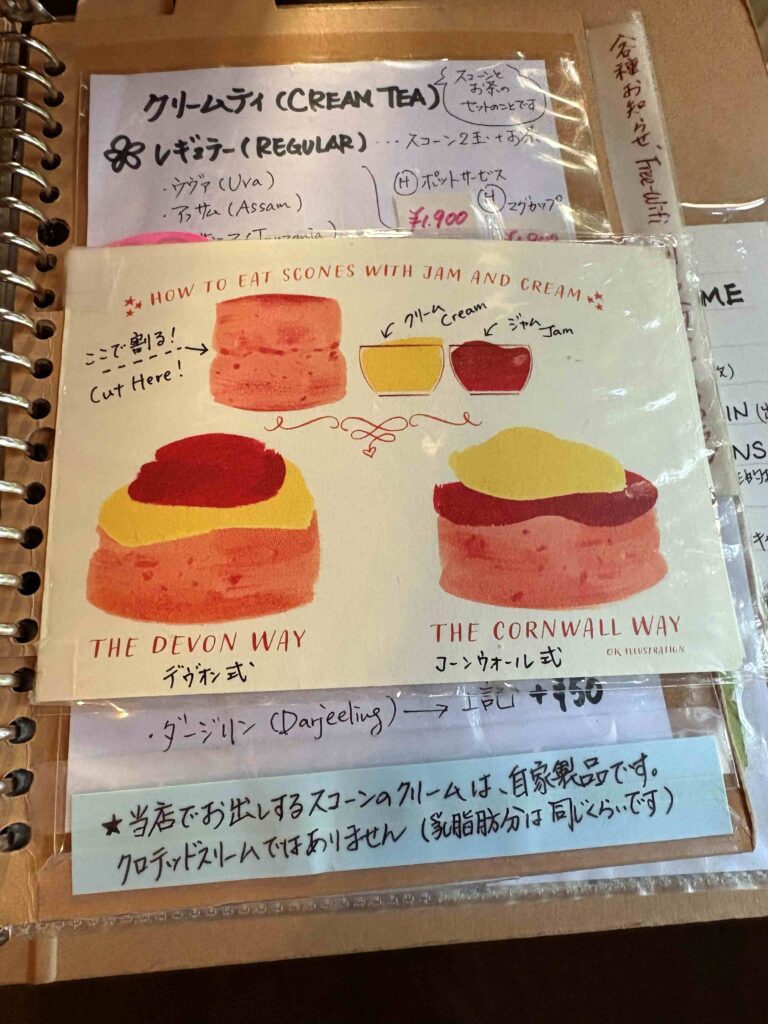 クリームティ(CREAM TEA)
スコーンと
お茶の
セットのことです
レギュラー(REGULAR)…スコーン2玉+お茶
・ウヴァ(Uva)
・アッサム(Assam)
(Tanzania)
Ⓗポットサービス
¥1,900
Ⓗマグカップ
各種お知らせ、Free-Wifi
HOW TO EAT SCONES WITH JAM AND CREAM
ここで割る!
Cut Here!
クリーム
Cream
ジャム
Jam
THE DEVON WAY
デヴォン式
THE CORNWALL WAY
©K ILLUSTRATION
コーンウォール式
・ダージリン(Darjeeling)→上記+¥50
★当店でお出しするスコーンのクリームは、自家製品です。
クロテッドクリームではありません(乳脂肪分は同じくらいです)
ME
IN
NS